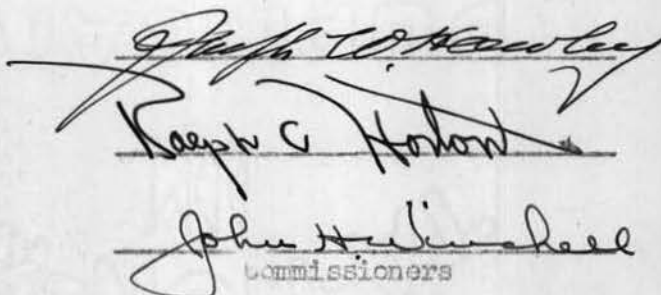 Joseph W. Hawley
Ralph C Horton
John H. Winchell
Commissioners